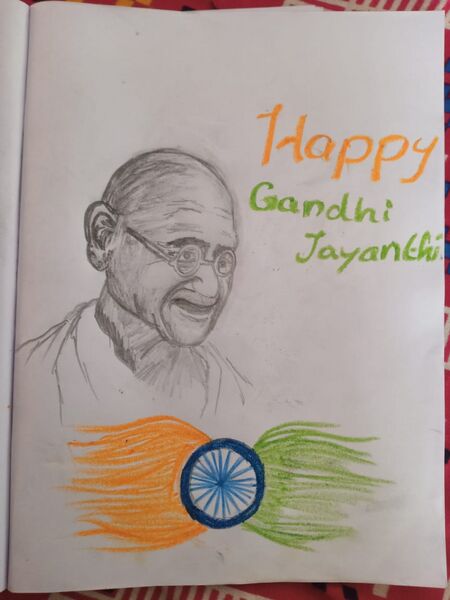 Happy
Gandhi
Jayanthi